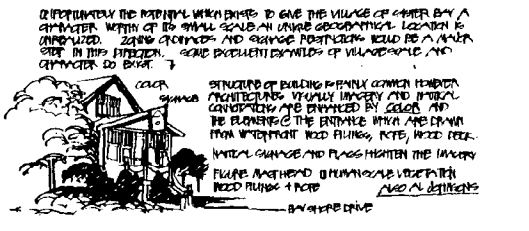 UNFORTUNATELY THE POTENTIAL WHICH EXISTS TO GIVE THE VILLAGE OF SISTER BAY A
CHARACTER WORTHY OF ITS SMALL SCALE AN UNIQUE GEOGRAPHICAL LOCATION IS
UNREALIZED. ZONING ORDINANCES AND SIGNAGE RESTRICTIONS WOULD BE A MAJOR
STEP IN THIS DIRECTION. SOME EXCELLENT EXAMPLES OF VILLAGE SCALE AND
CHARACTER DO EXIST.
COLOR
SIGNAGE
STRUCTURE OF BUILDING IS FAIRLY COMMON HOWEVER
ARCHITECTURES VISUALLY IMAGERY AND NAUTICAL
CONNOTATIONS ARE ENHANCED BY COLOR AND
THE ELEMENTS @ THE ENTRANCE WHICH ARE DRAWN
FROM WATERFRONT WOOD PILINGS, ROPE, WOOD DECK.
NAUTICAL SIGNAGE AND FLAGS HIGHTEN THE IMAGERY
FIGURE MASTHEAD HUMAN SCALE VEGETATION
WOOD PILINGS + ROPE
ALSO AL JOHNSONS
BAY SHORE DRIVE